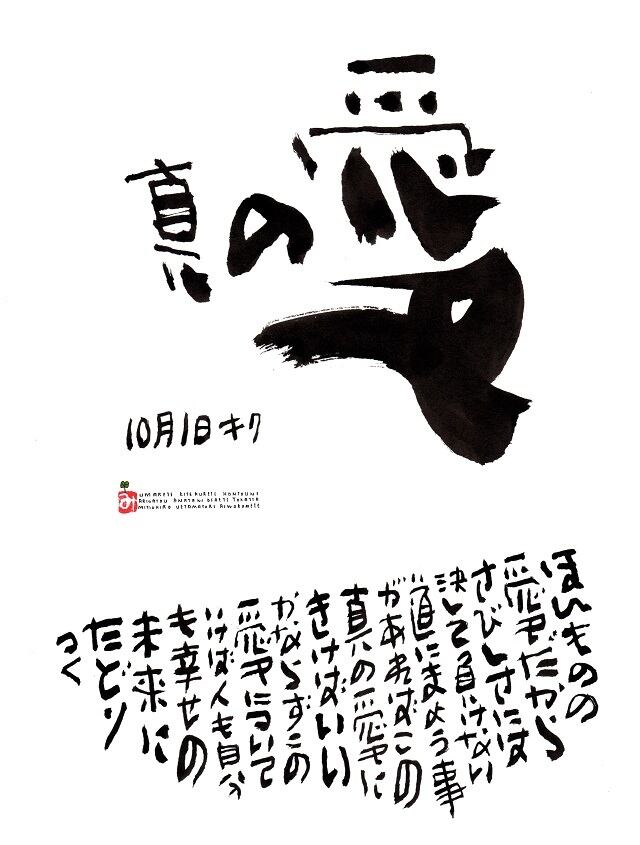 愛
の
真
10月1日 キク
み
UMARETE KITEKURETE HONTOUNI
ARIGATOU ANATANI DEAETE YOKATTA
MITIHIRO UETAMATUKI AIWOKOMETE
ほんものの
愛だから
さびしさには
決して負けない
道にまよう事
があればこの
真の愛に
きけばいい
かならずこの
愛について
いけば人も自分
も幸せの
未来に
たどり
つく